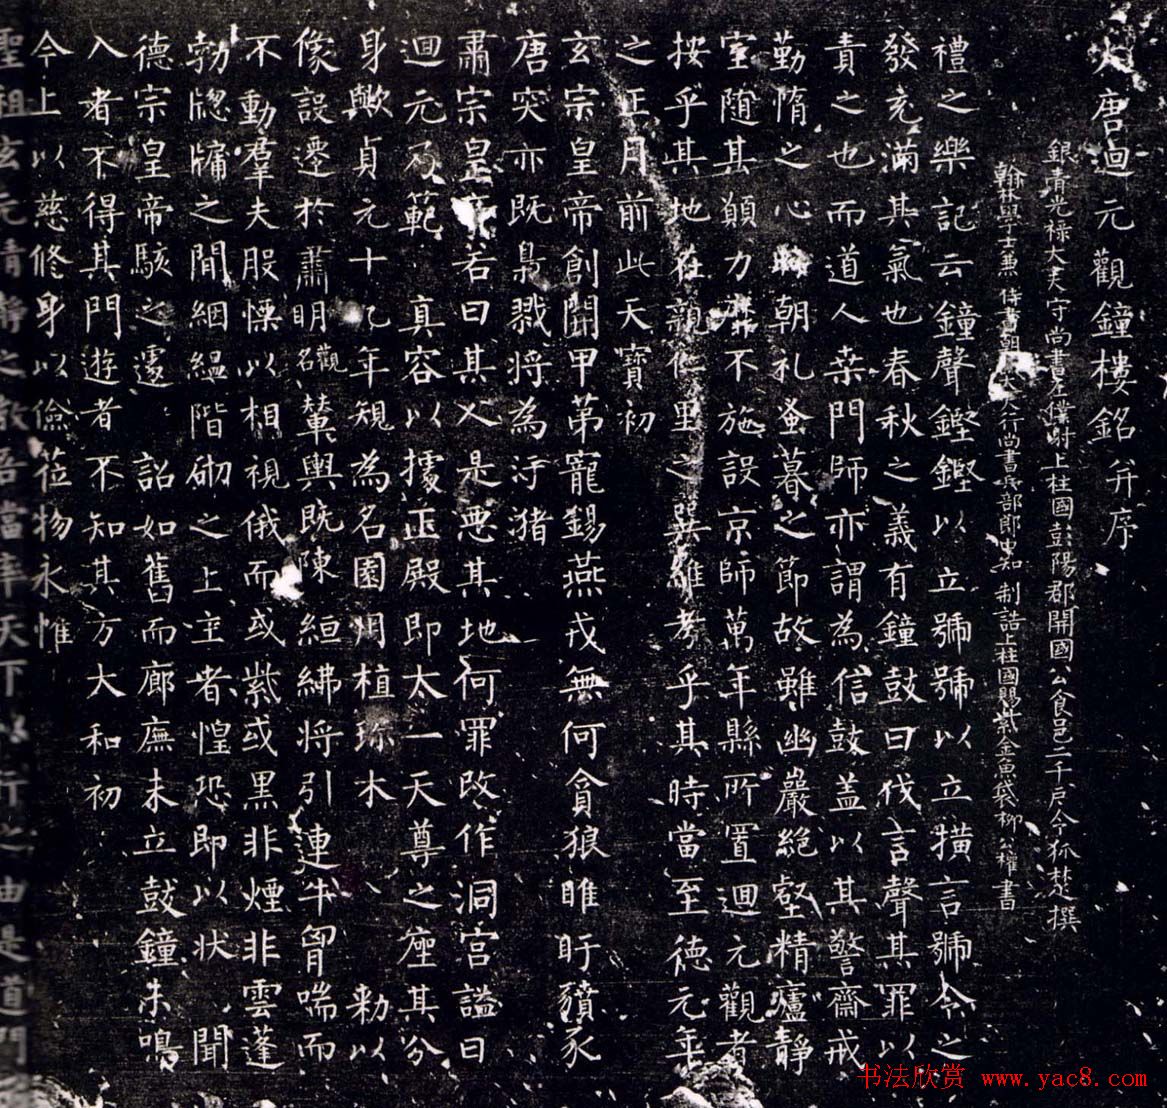 大唐迴元觀鐘樓銘并序
銀青光祿大夫守尚書左僕射上柱國彭陽郡開國公食邑二千戶令狐楚撰
翰林學士兼侍書朝大夫行尚書兵部郎中知制誥上柱國賜紫金魚袋柳公權書
禮之樂記云鐘聲鏗鏗以立號號以立橫言號令之
發充滿其氣也春秋之義有鐘鼓曰伐言聲其罪以
責之也而道人桒門師亦謂為信鼓盖以其警齋戒
勤惰之心時朝礼蚤暮之節故雖幽巖絕壑精廬靜
室隨其願力靡不施設京師萬年縣所置迴元觀者
按乎其地在親仁里之巽維考乎其時當至德元年
之正月前此天寶初
玄宗皇帝創開甲第寵錫燕戎無何貪狼睢盱豶豕
唐突亦既梟戮將為汙豬
肅宗皇帝若曰其人是惡其地何罪改作洞宮謚曰
迴元乃範真容以據正殿即太一天尊之座其分
身歟貞元十九年規為名園用植珎木敕以
像設遷於肅明觀名輦輿既陳綑紼將引連牛胷喘而
不動羣夫股慄以相視俄而或紫或黑非煙非雲蓬
勃牕牖之間絪縕階砌之上主者惶恐即以狀聞
德宗皇帝駭之遽詔如舊而廊廡未立鼓鐘未鳴
入者不得其門遊者不知其方大和初
今上以慈修身以儉莅物永惟
聖祖玄元清靜之教吾當率天下以行之由是道門
書法欣賞 www.yac8.com